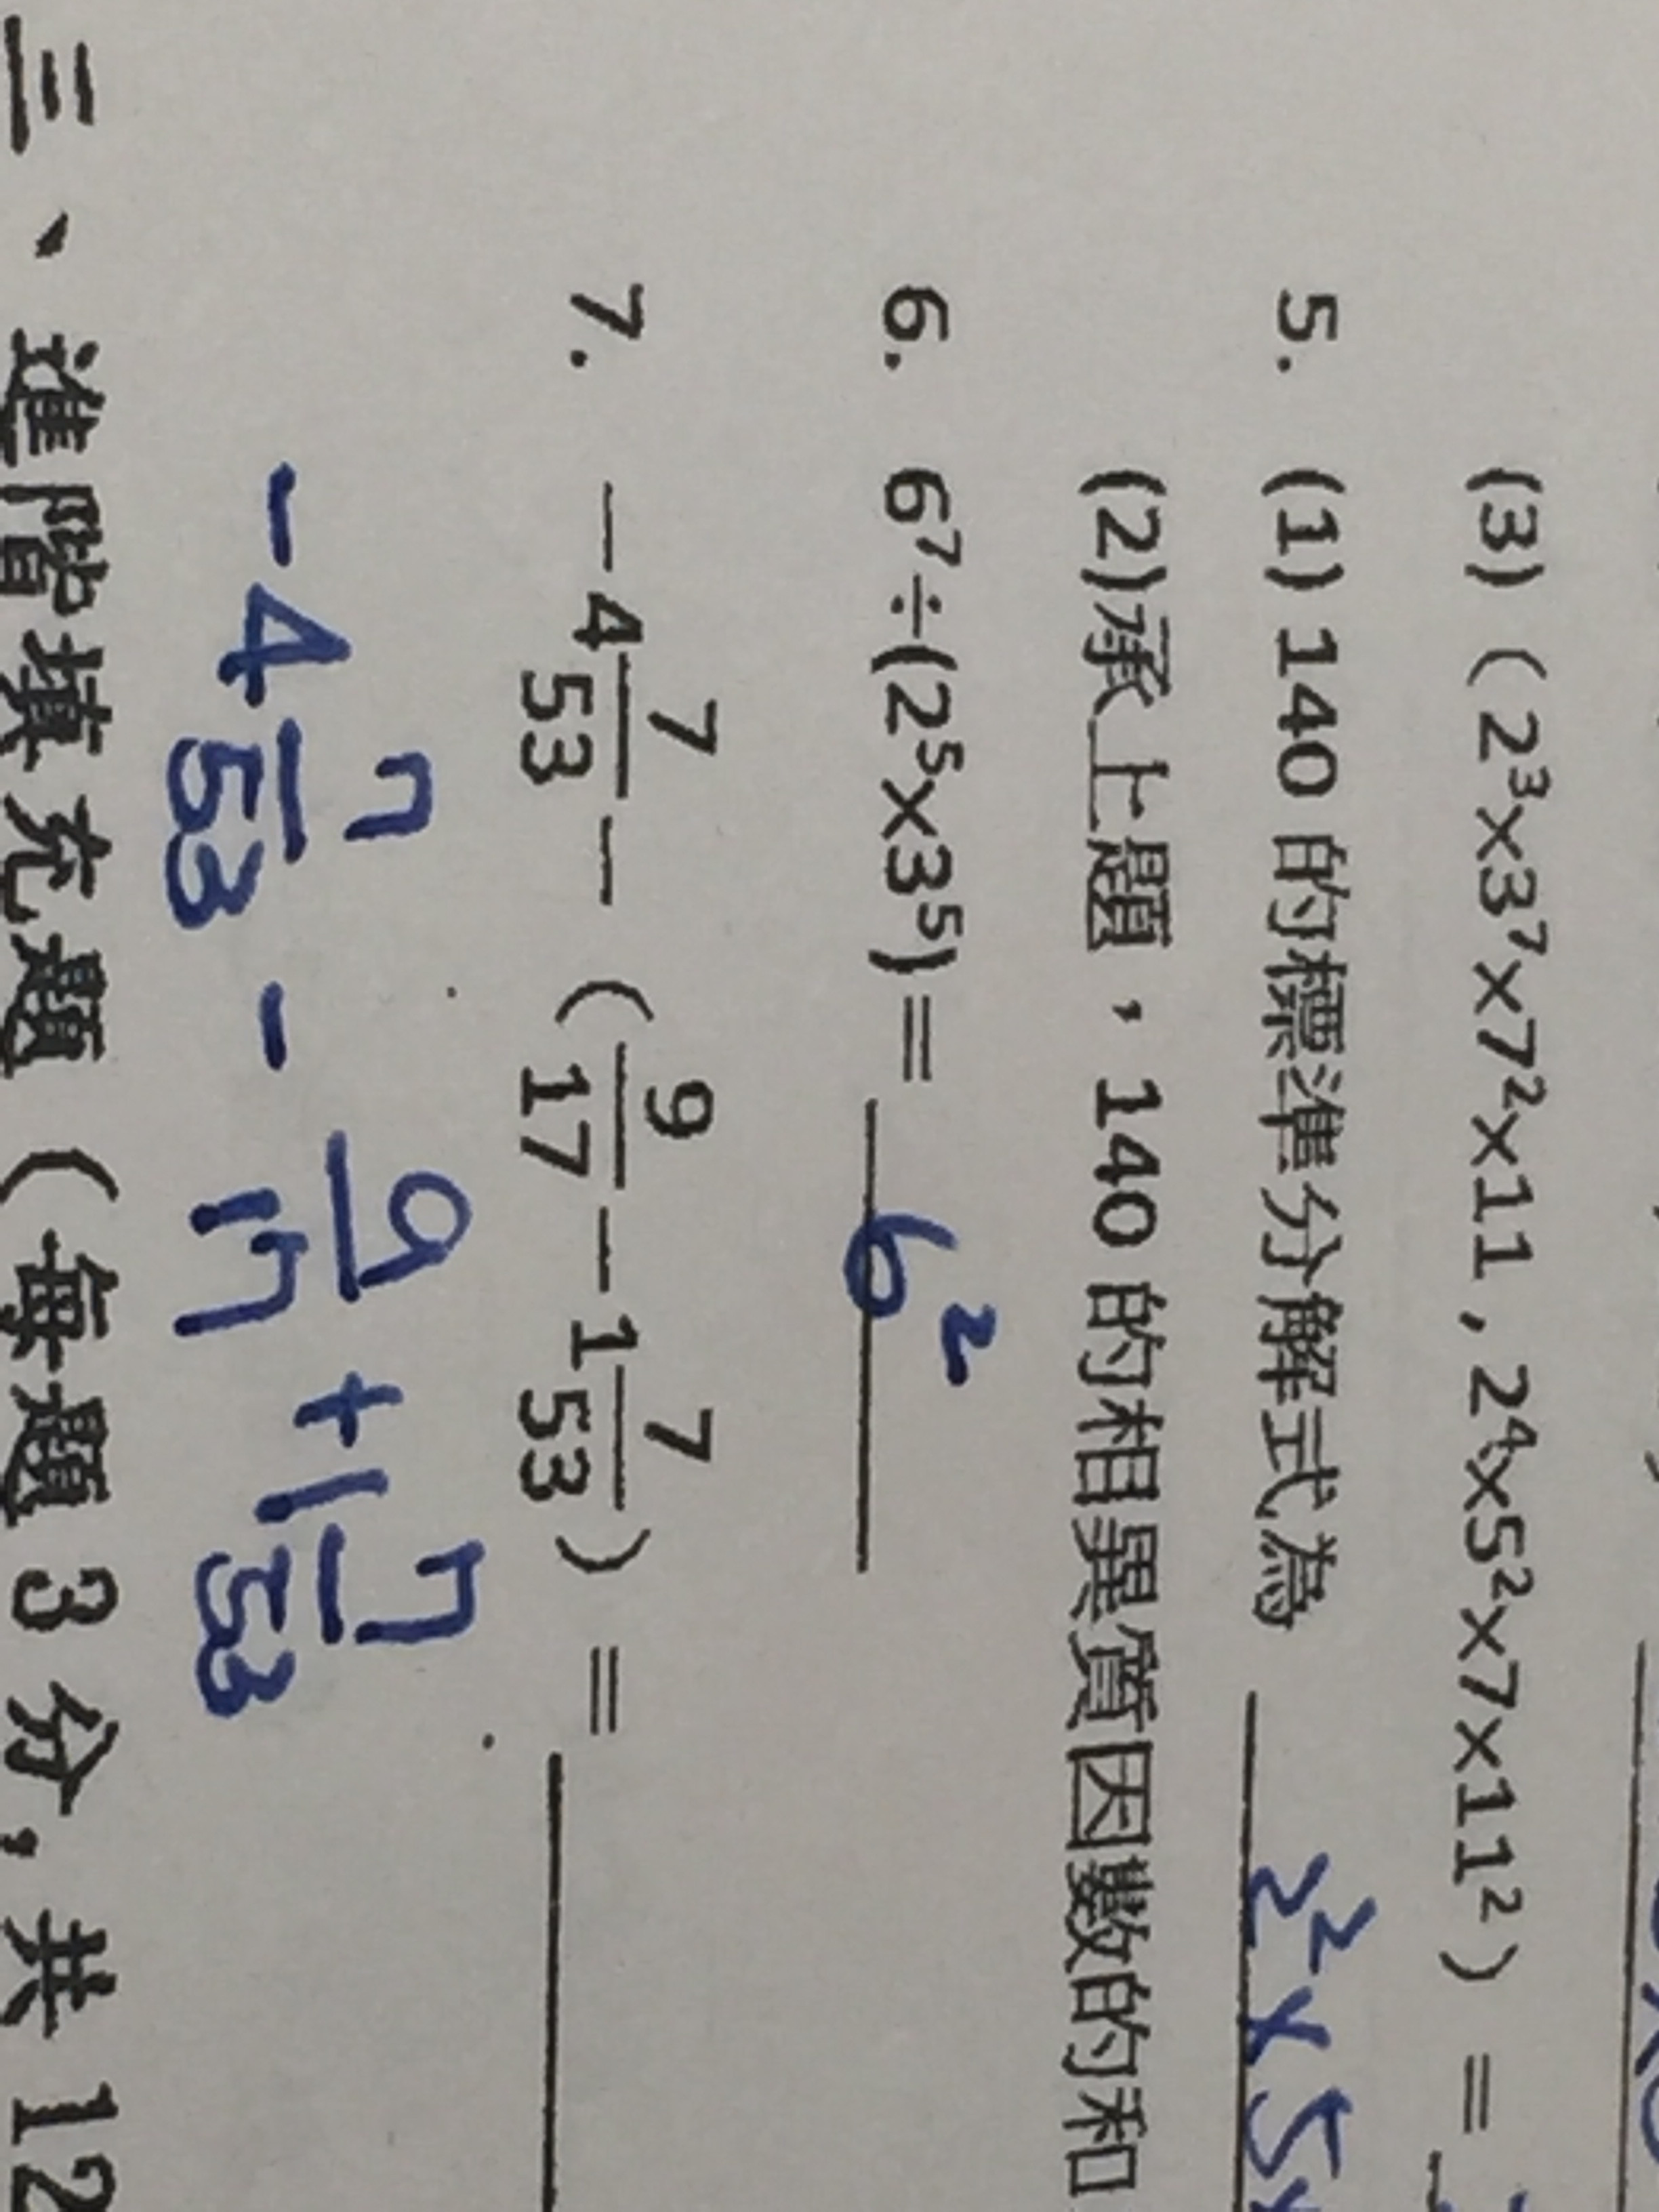 (3)（2³x3⁷x7²x11 , 2⁴x5²x7x11²）＝
5. (1) 140 的標準分解式為 2²x5
(2)承上題，140 的相異質因數的和
6. 6⁷÷(2⁵x3⁵)＝ 6²
7. －4 7/53－（9/17－1 7/53）＝
-4 7/53 - 9/17 +1 7/53
三、進階填充題（每題 3 分, 共 12